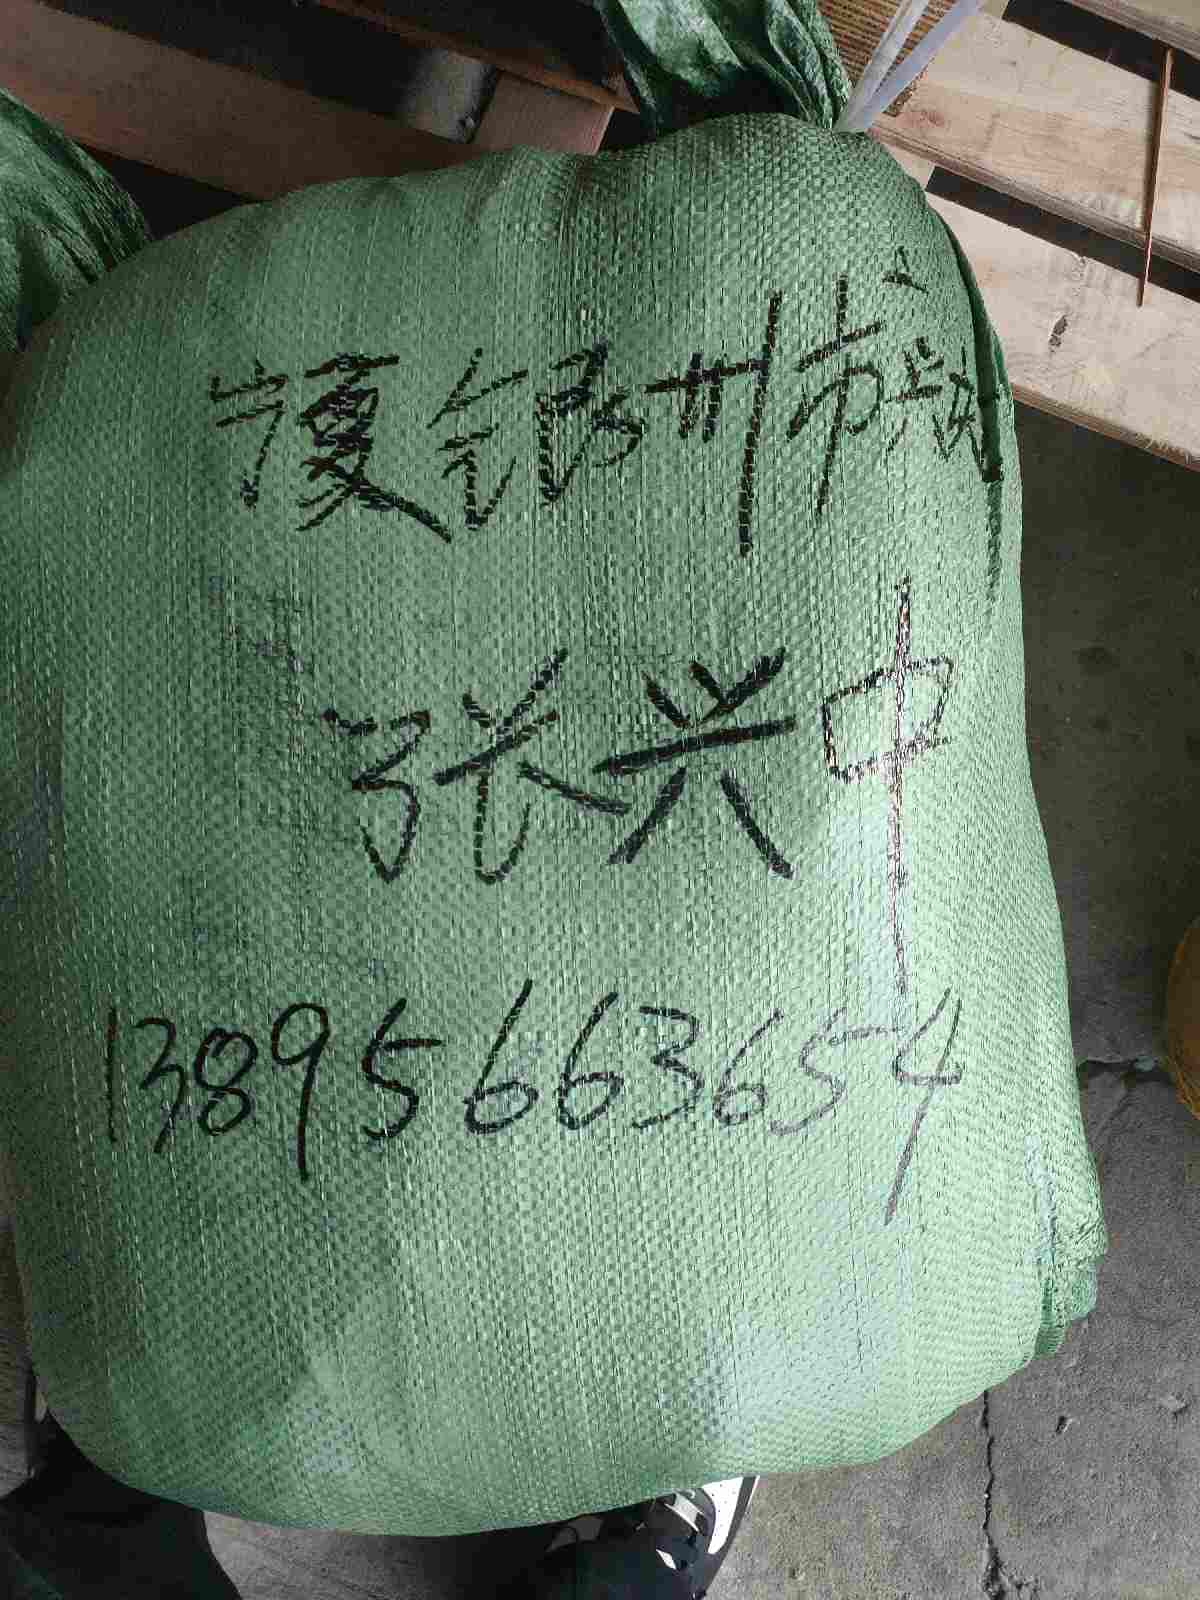 宁夏银州市
张兴中
13895663654